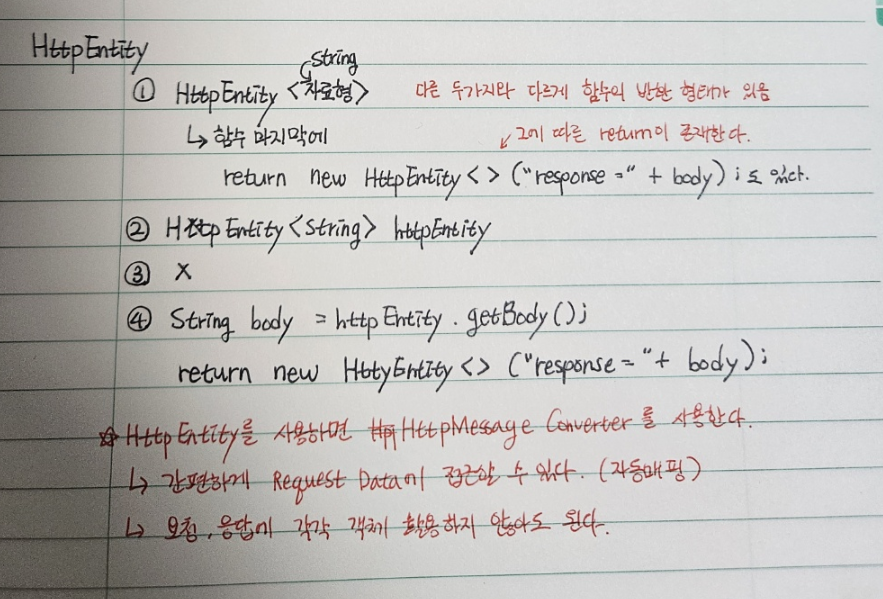 HttpEntity
String
① HttpEntity <자료형> 다른 두가지와 다르게 함수의 반환 형태가 있음
↳ 함수 마지막에 ↙ 그에 따른 return이 존재한다.
return new HttpEntity<> ("response =" + body) ; 도 있다.
② HttpEntity<String> httpEntity
③ X
④ String body = httpEntity . getBody();
return new HttyEntity <> ("response = "+ body);
☆ HttpEntity를 사용하면 HttpMessage Converter를 사용한다.
↳ 간편하게 Request Data에 접근할 수 있다. (자동매핑)
↳ 요청, 응답에 각각 객체 활용하지 않아도 된다.